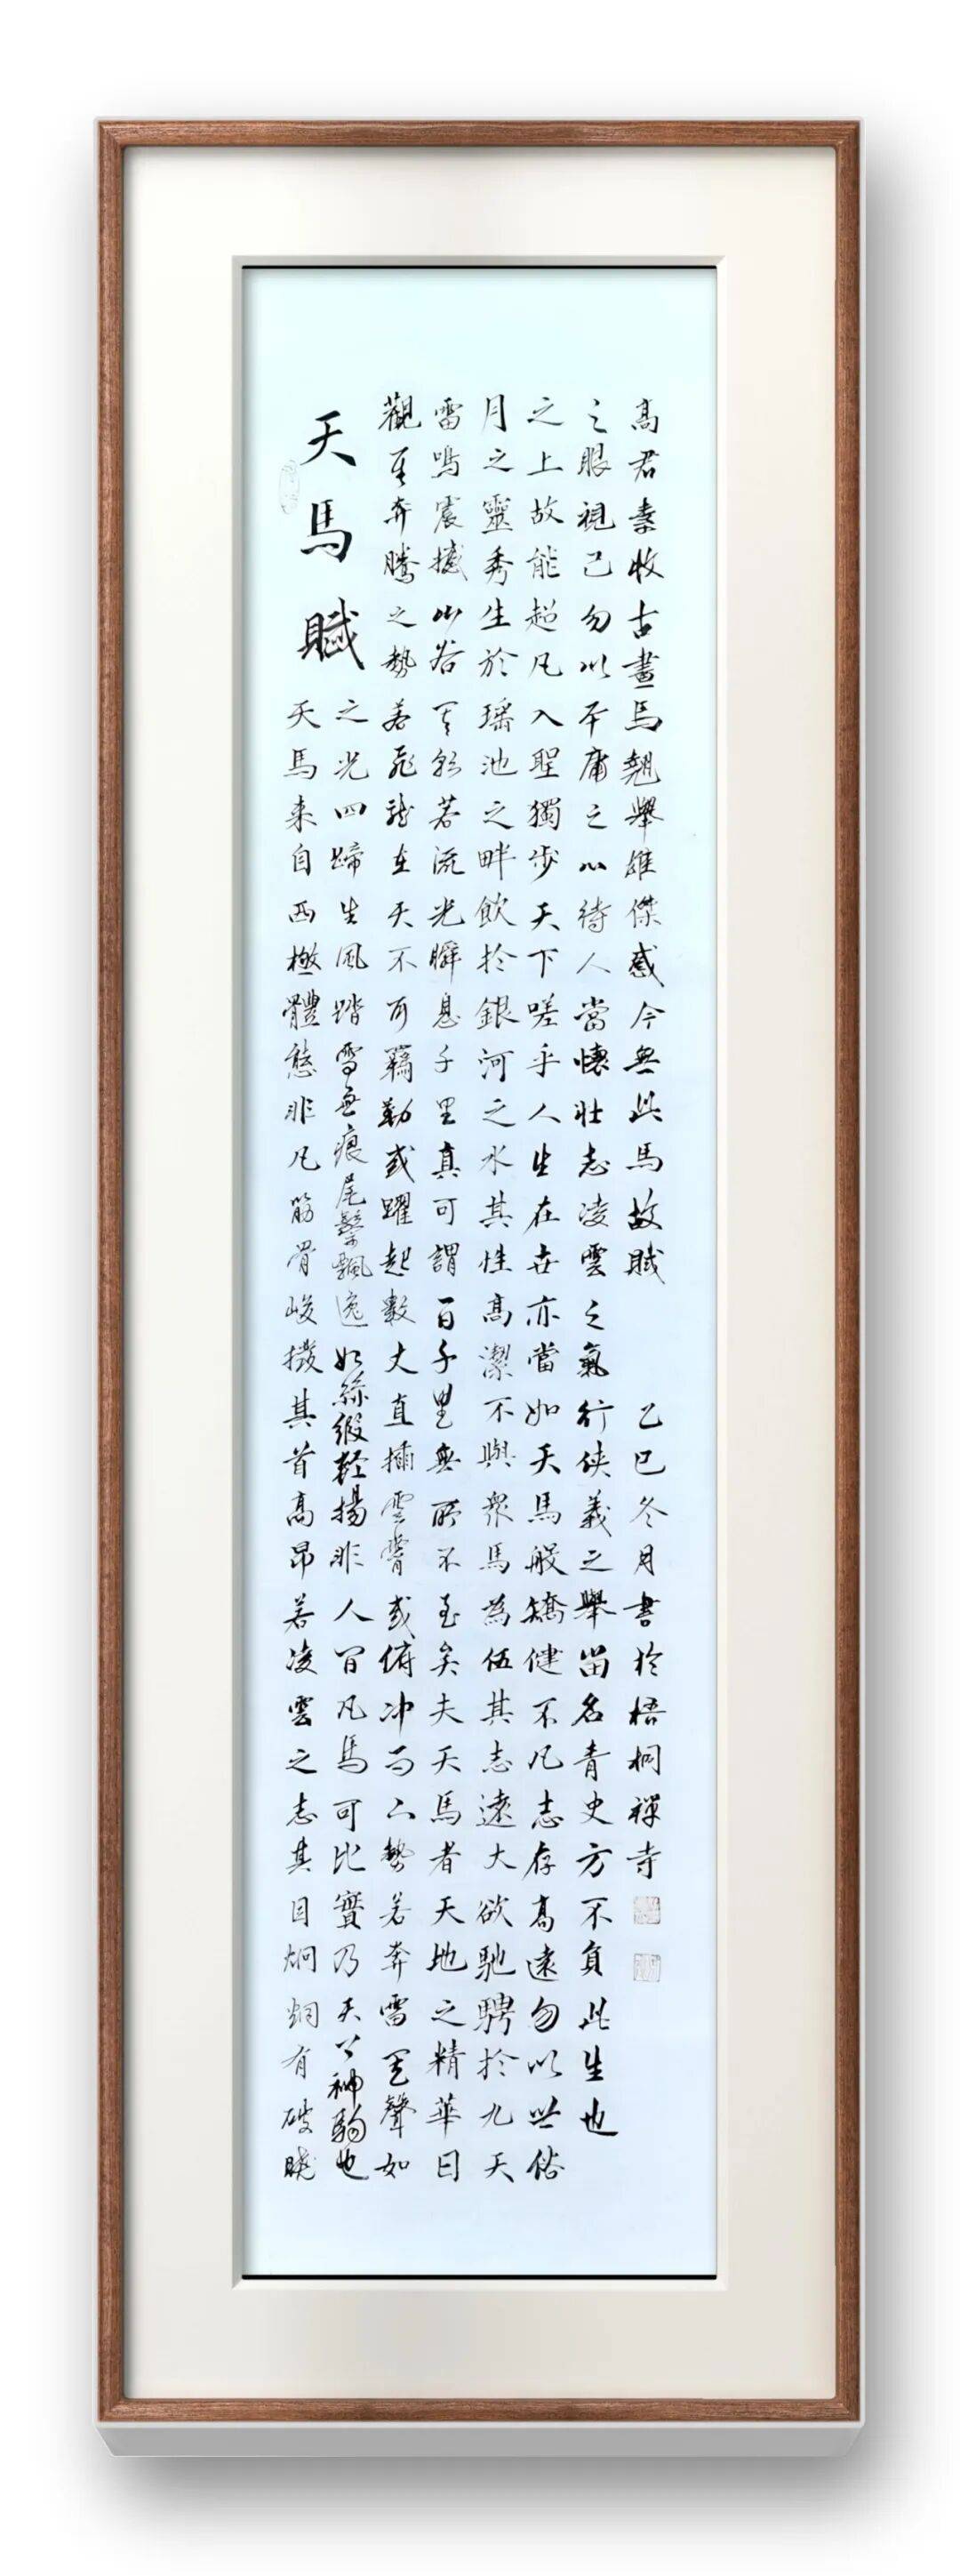 天馬賦
天馬來自西極體態非凡筋骨峻拔其首高昂若凌雲之志其目炯炯有破曉
之光四蹄生風踏雪無痕尾鬃飄逸如絲緞輕揚非人間凡馬可比實乃天上神駒也
觀其奔騰之勢若飛龍在天不可羈勒或躍起數丈直插雲霄或俯冲而下勢若奔雷其聲如
雷鳴震撼山谷其影若流光瞬息千里真可謂百千里無所不至矣夫天馬者天地之精華日
月之靈秀生於瑤池之畔飲於銀河之水其性高潔不與眾馬為伍其志遠大欲馳騁於九天
之上故能超凡入聖獨步天下嗟乎人生在世亦當如天馬般矯健不凡志存高遠勿以世俗
之眼視己勿以平庸之心待人當懷壯志凌雲之氣行俠義之舉留名青史方不負此生也
高君素收古畫馬翹舉雄傑感今無此馬故賦 乙巳冬月書於梧桐禪寺